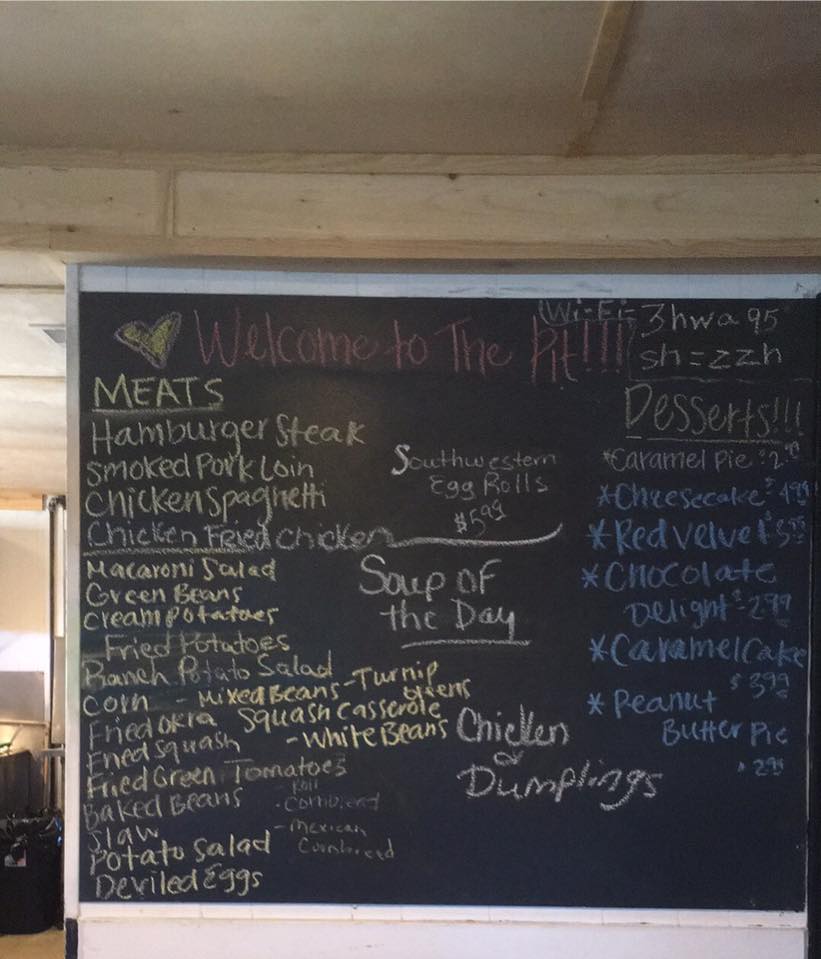 Welcome to The Pit!!!
Wi-Fi- 3hwa95
sh=zzh
MEATS
Hamburger Steak
Smoked Pork Loin
Chicken Spaghetti
Chicken Fried Chicken
Macaroni Salad
Green Beans
Cream Potatoes
Fried Potatoes
Ranch Potato Salad
Corn - Mixed Beans - Turnip
Greens
Fried Okra Squash Casserole
Fried Squash - White Beans
Fried Green Tomatoes
Baked Beans - Roll
- Cornbread
Slaw - Mexican
Cornbread
Potato Salad
Deviled Eggs
Southwestern
Egg Rolls
$5.99
Soup of
the Day
Chicken
&
Dumplings
Desserts!!!
*Caramel Pie $2.99
*Cheesecake $4.99
*Red Velvet $3.99
*Chocolate
Delight $2.99
*Caramel Cake
$3.99
*Peanut
Butter Pie